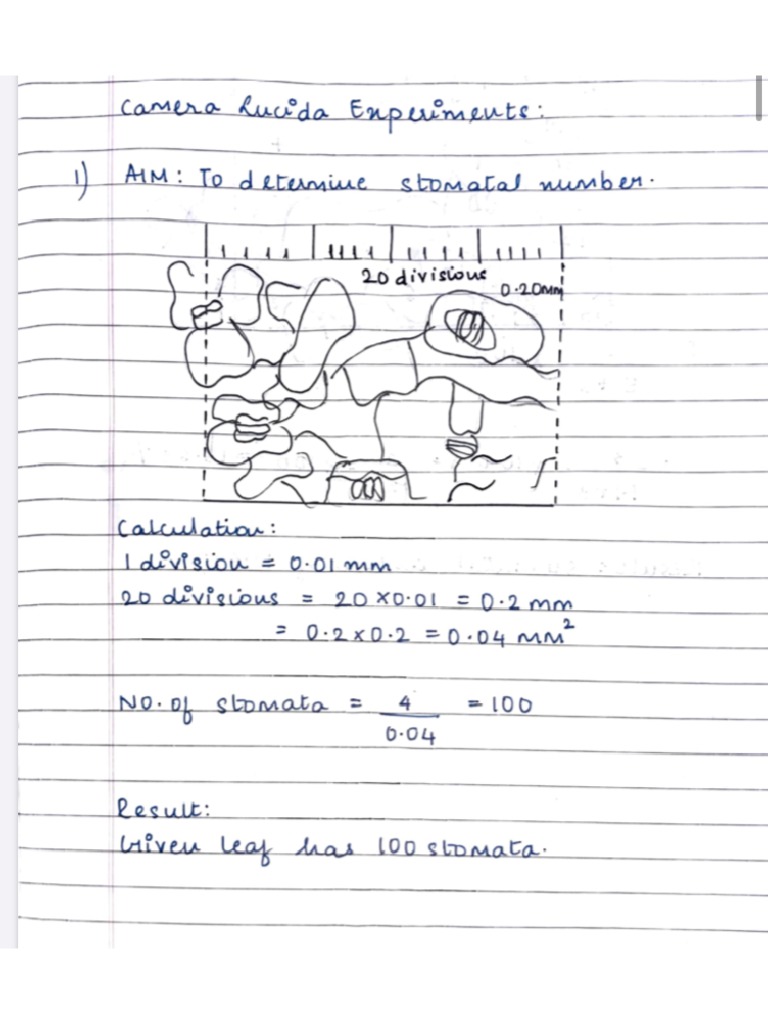 Camera Lucida Experiments:
1) AIM: To determine stomatal number.
20 divisions
0.20mm
Calculation:
1 division = 0.01 mm
20 divisions = 20 x 0.01 = 0.2 mm
= 0.2 x 0.2 = 0.04 mm²
No. of stomata = 4 = 100
0.04
Result:
Given leaf has 100 stomata.